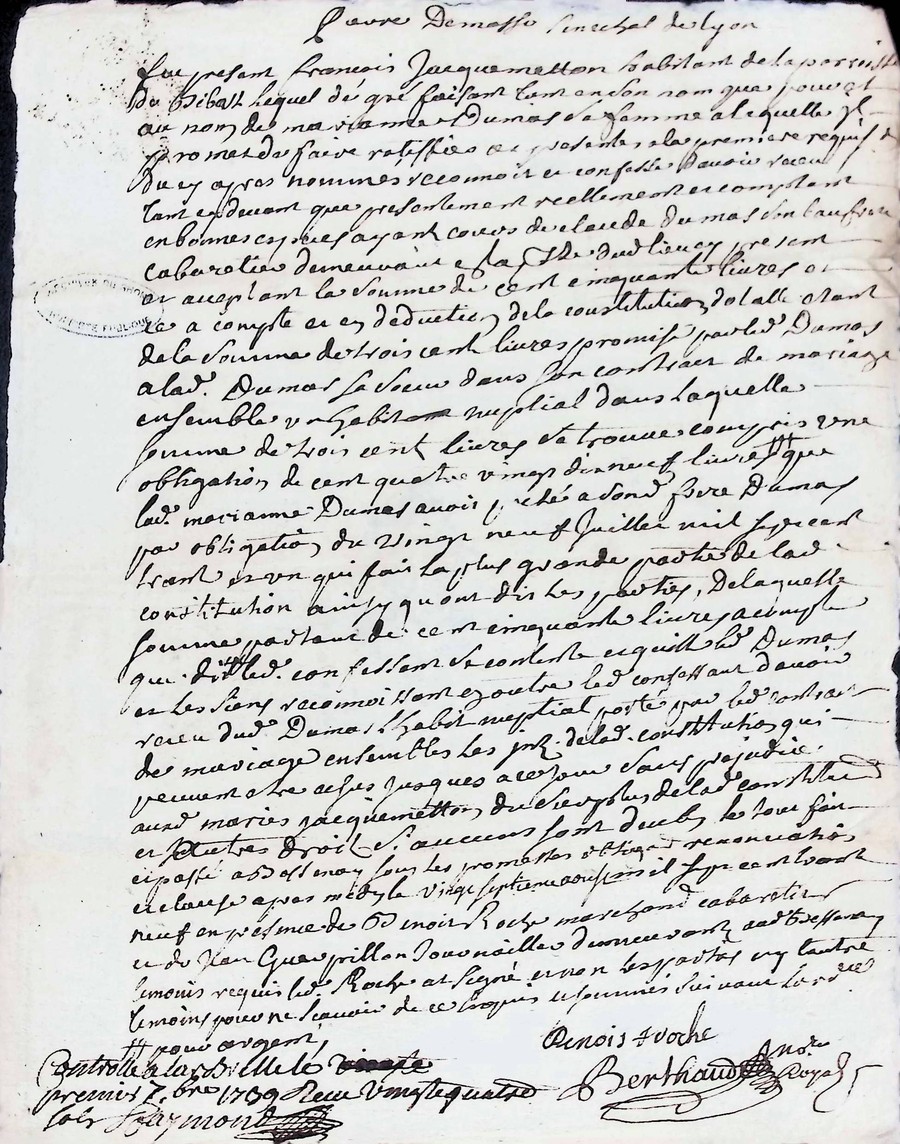 pierre Demasso senechal de lyon
fut present françois Jacquemetton habitant de la paroisse
du Bibost lequel de gré faisant tant en son nom que pour et
au nom de marianne Dumas sa femme a laquelle il
promet de faire ratiffier ces presentes a la premiere requis
du cy apres nommés reconnoit et confesse d'avoir receu
tant cy devant que presentement reellement et comptant
en bonnes especes ayant cours de claude Dumas son beaufrere
cabaretier demeurant dud lieu cy present
et acceptant la somme de cent cinquante livres et
ce a compte et en deduction de la constitution dotalle etant
de la somme de trois cent livres promise par led Dumas
a lad. Dumas sa soeur dans son contract de mariage
ensemble un habit nuptial dans laquelle
somme de trois cent livres se trouve compris une
obligation de cent quatre vingt dix neuf livres # que
lad. marianne Dumas avoit preté a sond frere Dumas
par obligation du vingt neuf Juillet mil sept cent
trante et un qui fait la plus grande partie de lad
constitution ainsy qu'ont dit les parties, De laquelle
somme partant de cent cinquante livres a compte
que led. confessant se contente et quitte led Dumas
et les siens reconnoissant en outre led confessant d'avoir
receu dud Dumas l'habit nuptial porté par led contract
de mariage ensembles les de lad. constitution qui
peuvent etre jusques a ce jour sans prejudice
aud mariés jacquemetton du surplus de lad constitution
et autres droit si aucuns sont deubs le tout fait
et passé a Bessenay sous les promesses obligaõns renonciations
et clause apres midy le vingt septieme aoust mil sept cent trante
neuf en presence de Benoit Roche marchand cabaretier
et de Jean Guerpillon Journaillier demeurant aud Bessenay
temoins requis led Roche a signé et non les parties ny l'autre
temoins pour ne scavoir de ce enquis et sommés suivant l'ord.ce
# pour argent,
Benois Roche
Controllé a la Bresle le
premier 7.bre 1739 Receu vingtquatre
sols Raymond
Berthaud Nore Royal